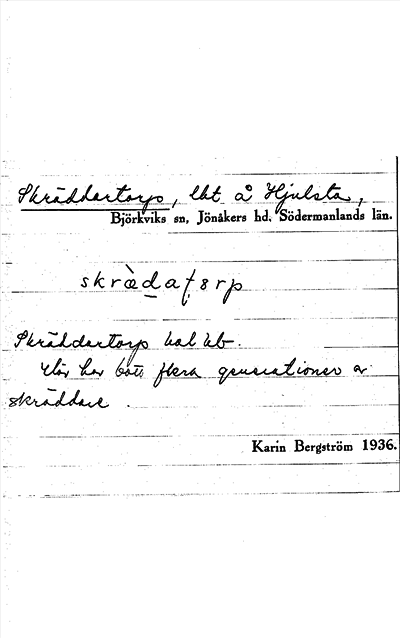 Skräddartorp, lht å Hjulsta,
Björkviks sn, Jönåkers hd, Södermanlands län.
skrædatorp
Skräddartorp hal kb.
Här har bott flera generationer av
skräddare.
Karin Bergström 1936.